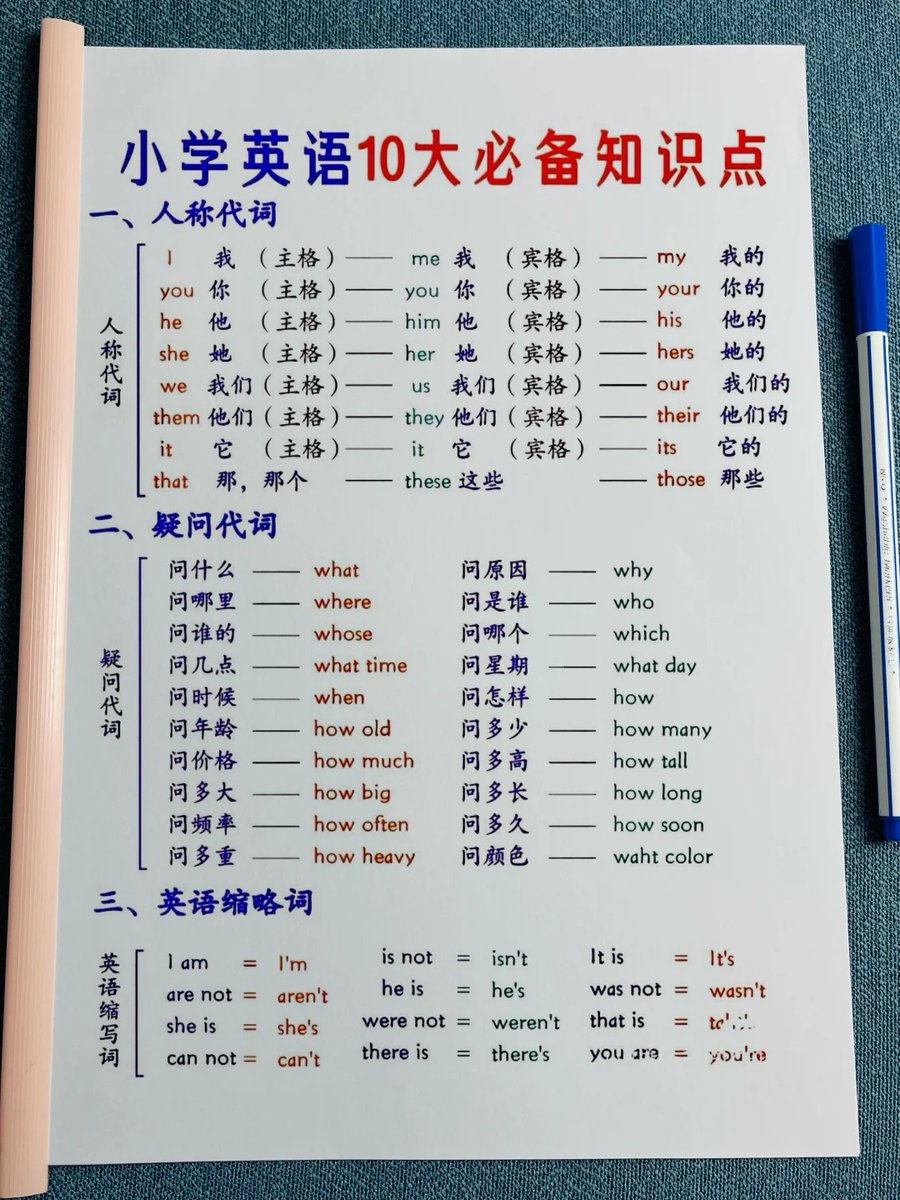 小学英语10大必备知识点
一、人称代词
人称代词
I 我 （主格）—— me 我 （宾格）—— my 我的
you 你 （主格）—— you 你 （宾格）—— your 你的
he 他 （主格）—— him 他 （宾格）—— his 他的
she 她 （主格）—— her 她 （宾格）—— hers 她的
we 我们（主格）—— us 我们（宾格）—— our 我们的
them 他们（主格）—— they 他们（宾格）—— their 他们的
it 它 （主格）—— it 它 （宾格）—— its 它的
that 那，那个 —— these 这些 —— those 那些
二、疑问代词
疑问代词
问什么 —— what 问原因 —— why
问哪里 —— where 问是谁 —— who
问谁的 —— whose 问哪个 —— which
问几点 —— what time 问星期 —— what day
问时候 —— when 问怎样 —— how
问年龄 —— how old 问多少 —— how many
问价格 —— how much 问多高 —— how tall
问多大 —— how big 问多长 —— how long
问频率 —— how often 问多久 —— how soon
问多重 —— how heavy 问颜色 —— waht color
三、英语缩略词
英语缩写词
I am = I'm is not = isn't It is = It's
are not = aren't he is = he's was not = wasn't
she is = she's were not = weren't that is =
can not = can't there is = there's you are = you're